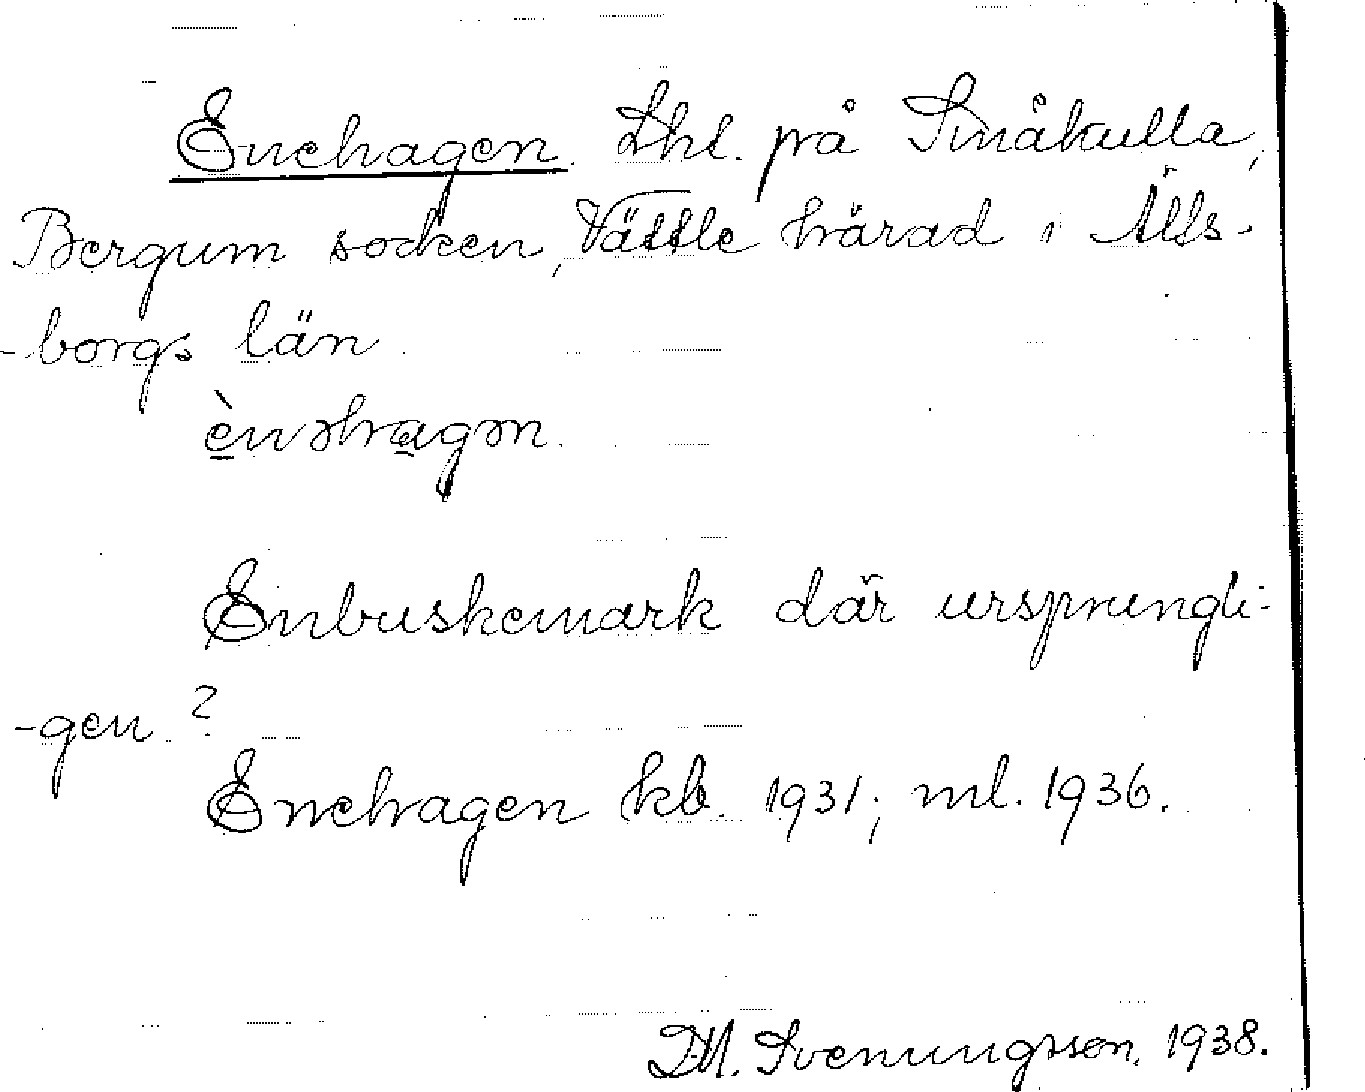 Enehagen. Lht. på Småkulla,
Bergum socken, Vättle härad i Älfs-
-borgs län.
ènəhagən.
Enbuskemark där ursprungli-
-gen?
Enehagen kb. 1931; ml. 1936.
D.M. Svenungsson. 1938.